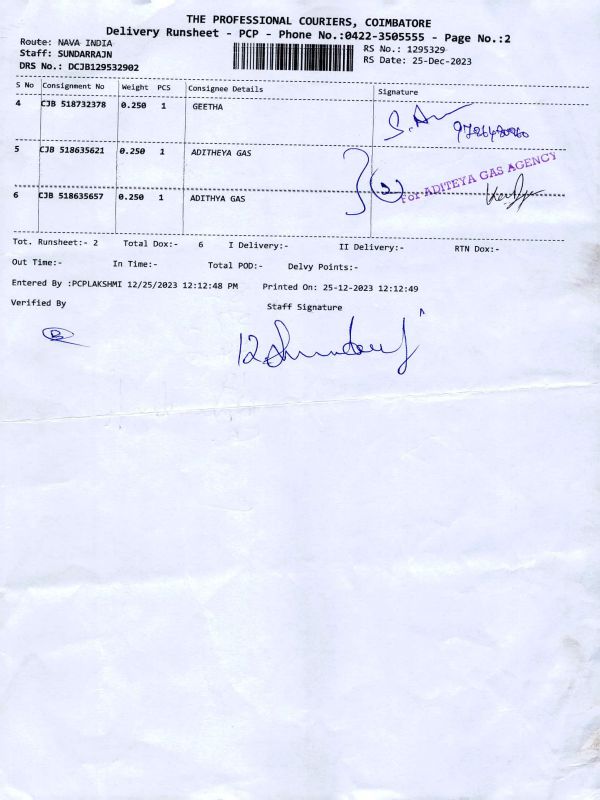 THE PROFESSIONAL COURIERS, COIMBATORE
Delivery Runsheet - PCP - Phone No.:0422-3505555 - Page No.:2
Route: NAVA INDIA
RS No.: 1295329
Staff: SUNDARRAJN
RS Date: 25-Dec-2023
DRS No.: DCJB129532902
S No Consignment No Weight PCS Consignee Details Signature
4 CJB 518732378 0.250 1 GEETHA
5 CJB 518635621 0.250 1 ADITHEYA GAS
For ADITEYA GAS AGENCY
6 CJB 518635657 0.250 1 ADITHYA GAS
Tot. Runsheet:- 2 Total Dox:- 6 I Delivery:- II Delivery:- RTN Dox:-
Out Time:- In Time:- Total POD:- Delvy Points:-
Entered By :PCPLAKSHMI 12/25/2023 12:12:48 PM Printed On: 25-12-2023 12:12:49
Verified By Staff Signature